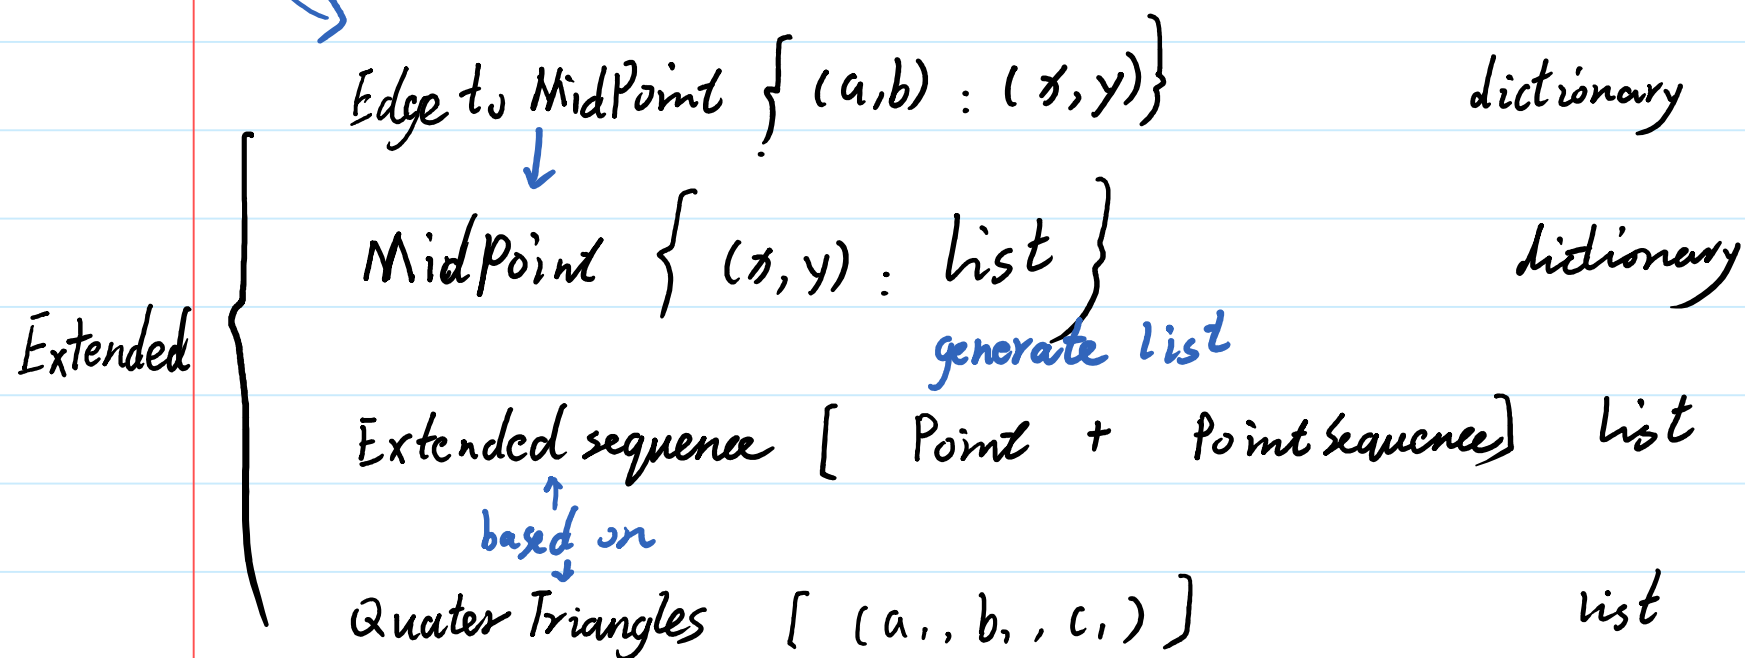 Edge to MidPoint { (a,b) : (x,y)} dictionary
MidPoint { (x,y) : list } dictionary
generate list
Extended
Extended sequence [ Point + Point Sequence] list
based on
Quater Triangles [ (a₁, b₁, c₁) ] list